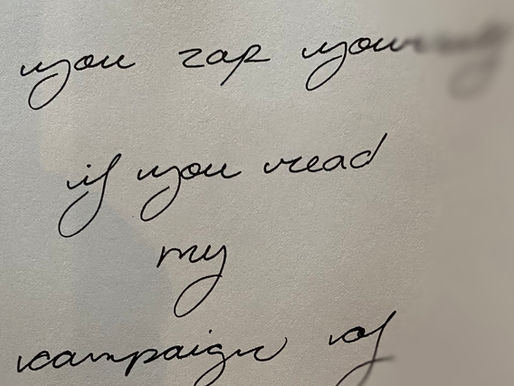 you zap
if you read
my
campaign of